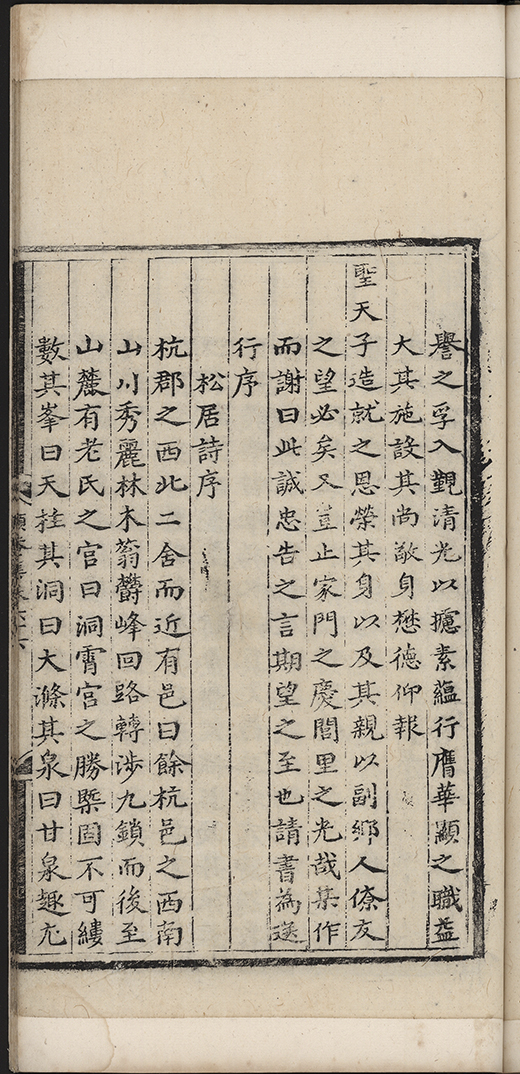 譽之孚入覲清光以攄素蘊行膺華顯之職益
大其施設其尚敬身懋德仰報
聖天子造就之恩榮其身以及其親以副鄉人僚友
之望必矣又豈止家門之慶閭里之光哉某作
而謝曰此誠忠告之言期望之至也請書為送
行序
松居詩序
杭郡之西北二舍而近有邑曰餘杭邑之西南
山川秀麗林木蓊欝峰回路轉涉九鎖而後至
山麓有老氏之官曰洞霄宮之勝槩固不可縷
數其峯曰天柱其洞曰大滌其泉曰甘泉趣尤